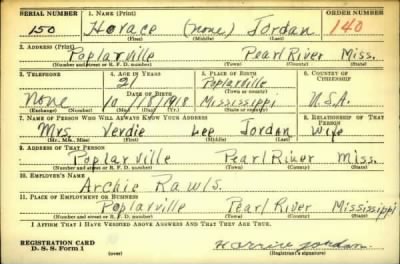 SERIAL NUMBER 1. NAME (Print) ORDER NUMBER
150 Horace (none) Jordan 140
(First) (Middle) (Last)
2. ADDRESS (Print)
Poplarville Pearl River Miss.
(Number and street or R. F. D. number) (Town) (County) (State)
3. TELEPHONE 4. AGE IN YEARS 5. PLACE OF BIRTH 6. COUNTRY OF CITIZENSHIP
21 Poplarville
DATE OF BIRTH (Town or county)
None 10/15/1918 Mississippi U.S.A.
(Exchange) (Number) (Mo.) (Day) (Yr.) (State or country)
7. NAME OF PERSON WHO WILL ALWAYS KNOW YOUR ADDRESS 8. RELATIONSHIP OF THAT PERSON
Mrs Verdie Lee Jordan Wife
(Mr., Mrs., Miss) (First) (Middle) (Last)
9. ADDRESS OF THAT PERSON
Poplarville Pearl River Miss.
(Number and street or R. F. D. number) (Town) (County) (State)
10. EMPLOYER'S NAME
Archie Rawls.
11. PLACE OF EMPLOYMENT OR BUSINESS
Poplarville Pearl River Mississippi
(Number and street or R. F. D. number) (Town) (County) (State)
I AFFIRM THAT I HAVE VERIFIED ABOVE ANSWERS AND THAT THEY ARE TRUE.
REGISTRATION CARD
D. S. S. Form 1 (over) Jordan
(Registrant's signature)